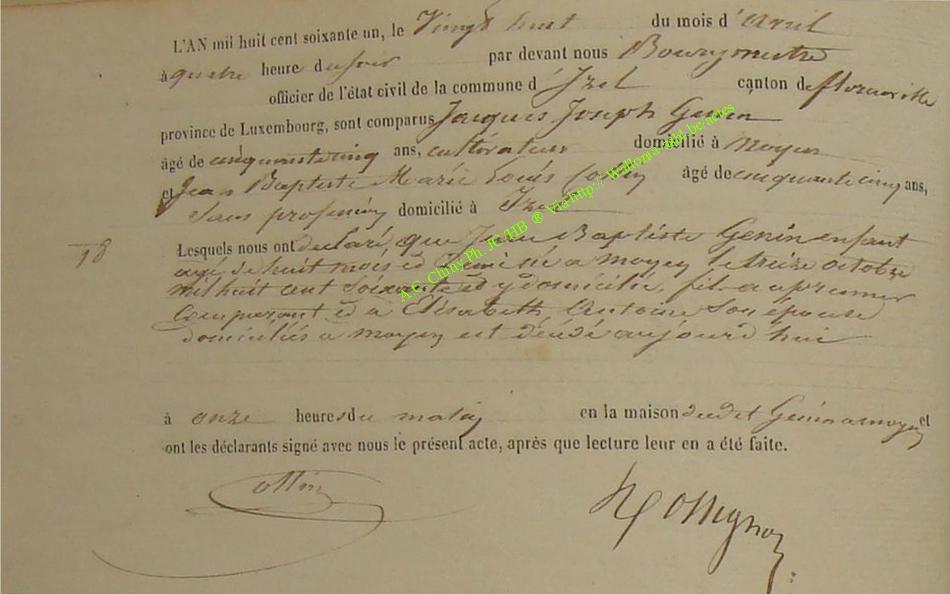 L'AN mil huit cent soixante un, le Vingt huit du mois d'avril
à quatre heure du soir par devant nous Bourgmestre
officier de l'état civil de la commune d'Izel canton de florenville
province de Luxembourg, sont comparus Jacques Joseph Genin
âgé de cinquantecinq ans, cultivateur domicilié à Moyen
et Jean Baptiste Marie Louis âgé de cinquantecinq ans,
Sans profession domicilié à Izel
18
Lesquels nous ont declaré que Jean Baptiste Genin enfant
agé de huit mois né a moyen le treize octobre
mil huit cent soixante et y domicilié, fils au premier
Comparant et a Elisabeth Antoine Son épouse
domiciliés a moyen est décédé aujourd'hui
à onze heures du matin en la maison dudit Genin a moyen et
ont les déclarants signé avec nous le présent acte, après que lecture leur en a été faite.
A.C. Chiny Ph. JC/HB ® Via http://Wallonia-mbl.be/actes